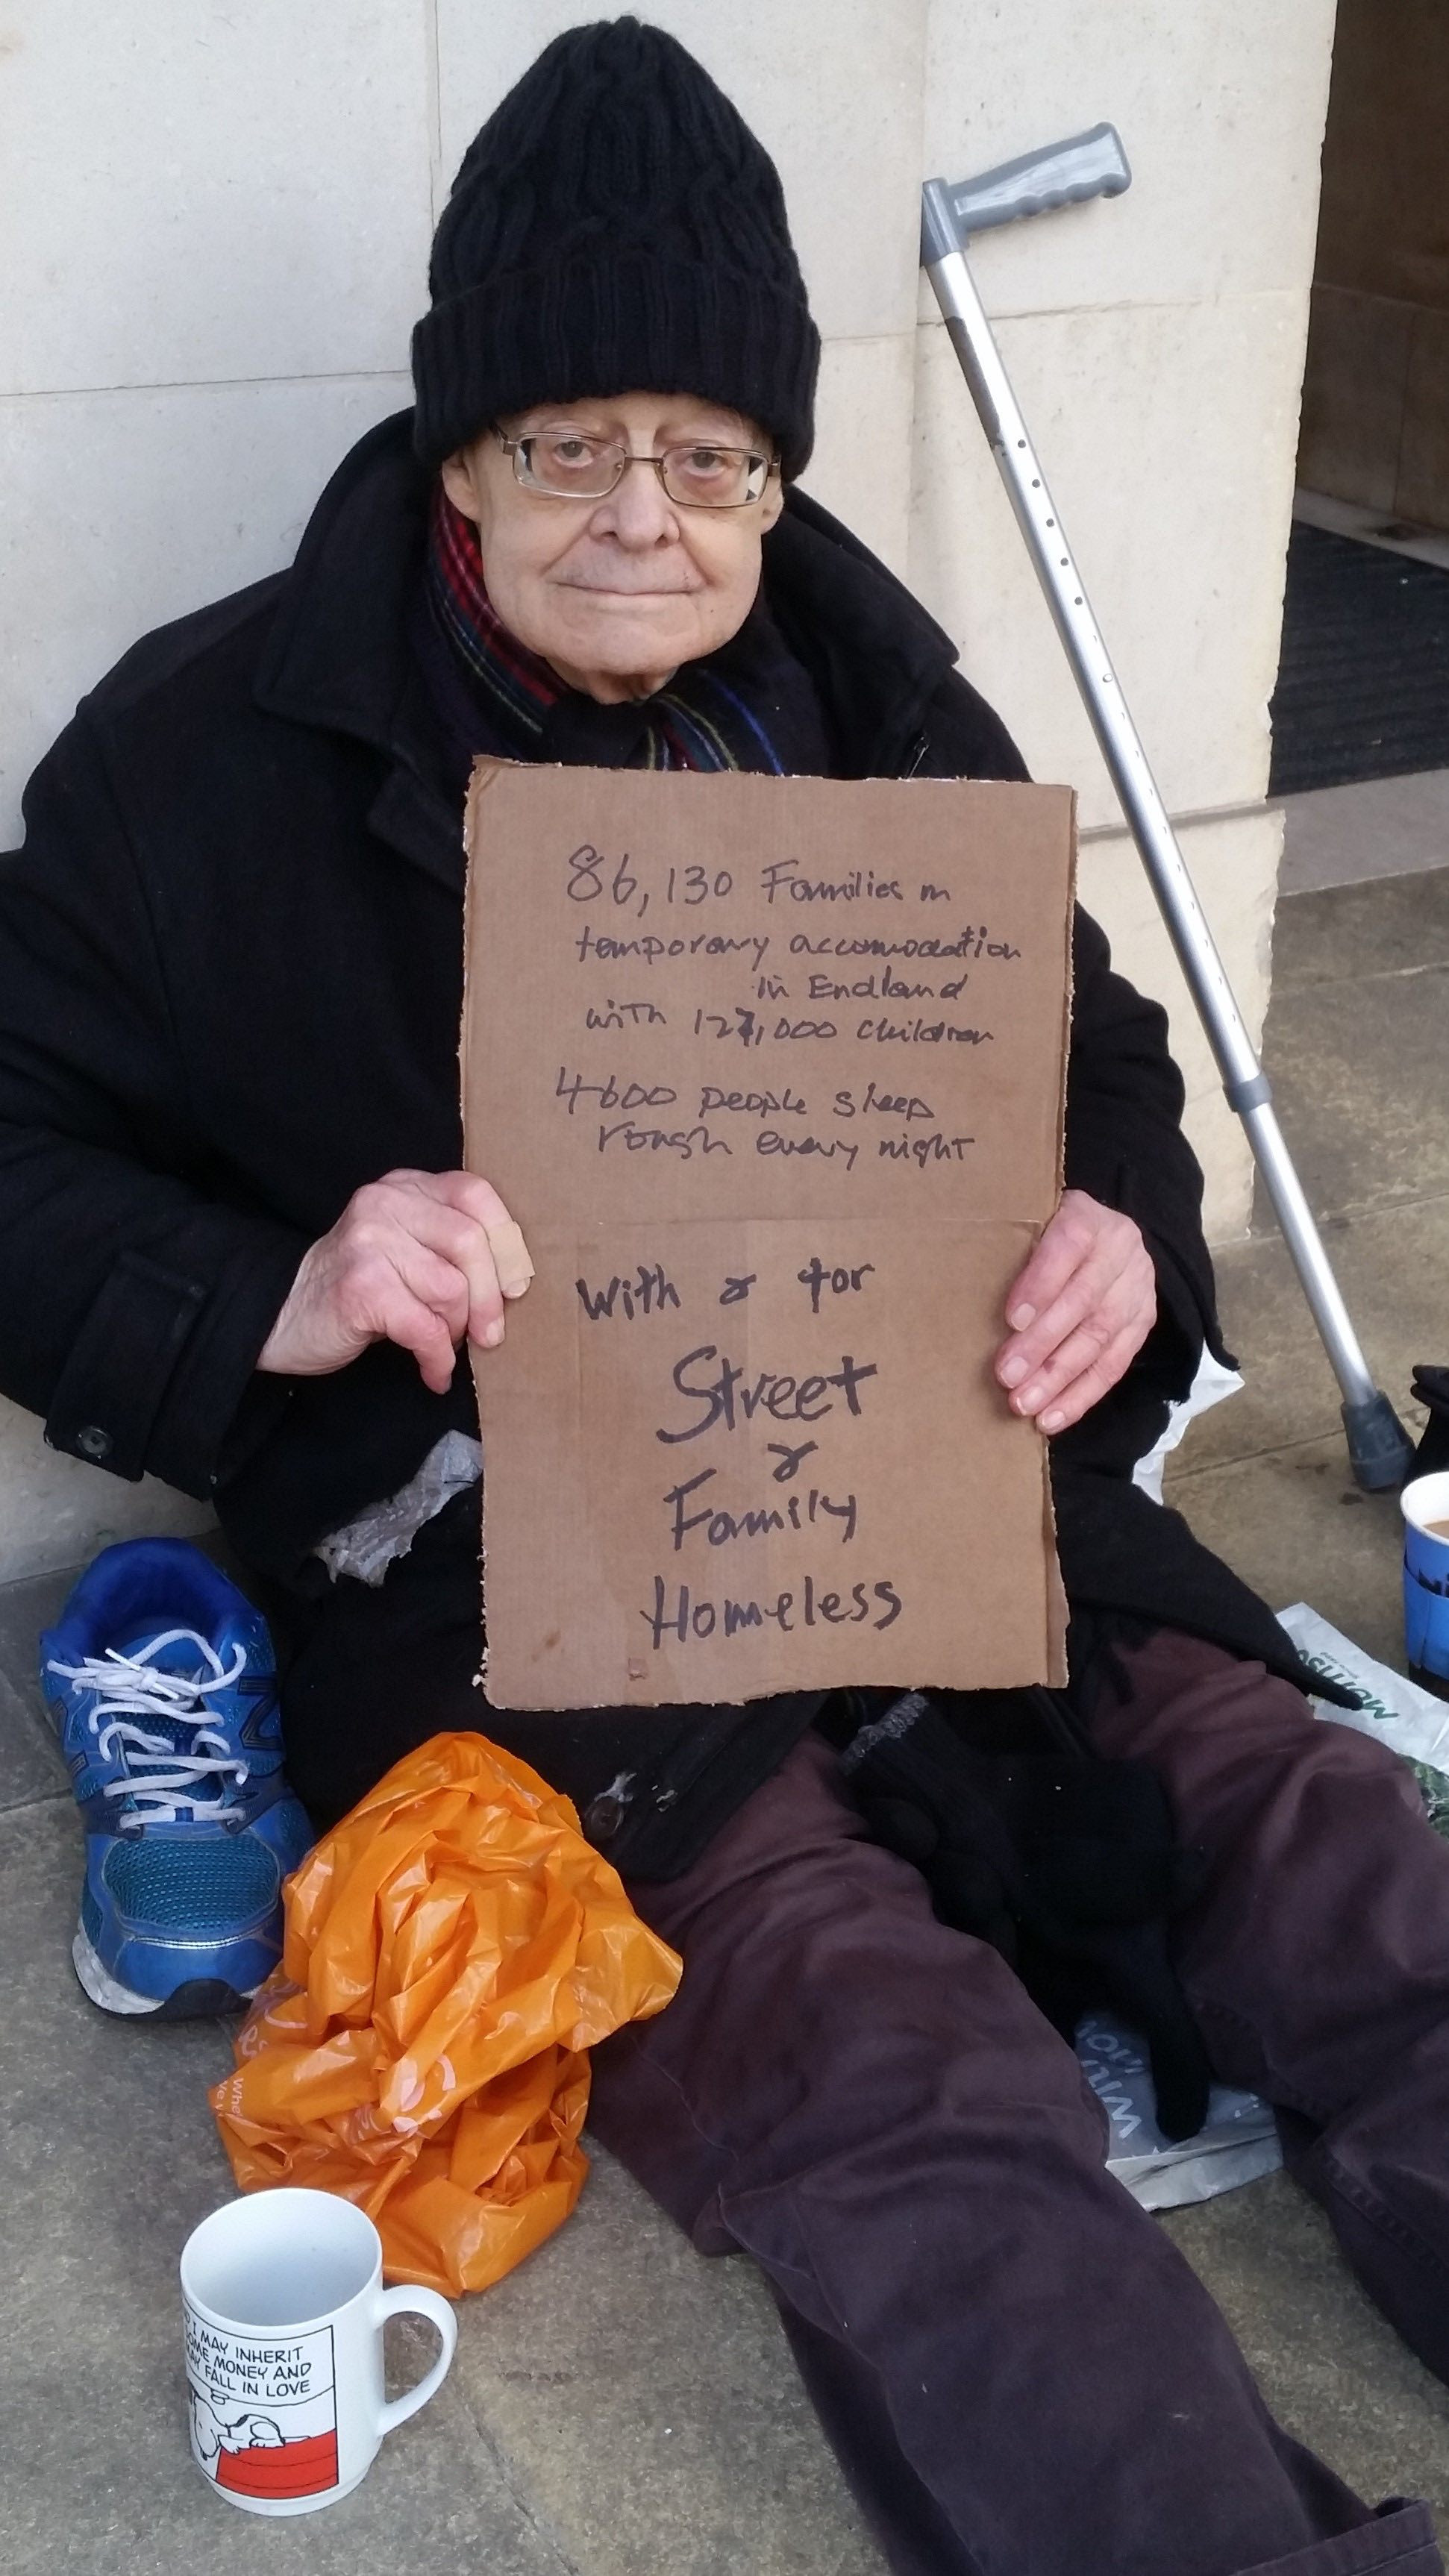 86,130 Families in
temporary accomodation
in England
with 127,000 children
4600 people sleep
rough every night
With & for
Street
&
Family
Homeless
I MAY INHERIT
SOME MONEY AND
MAY FALL IN LOVE